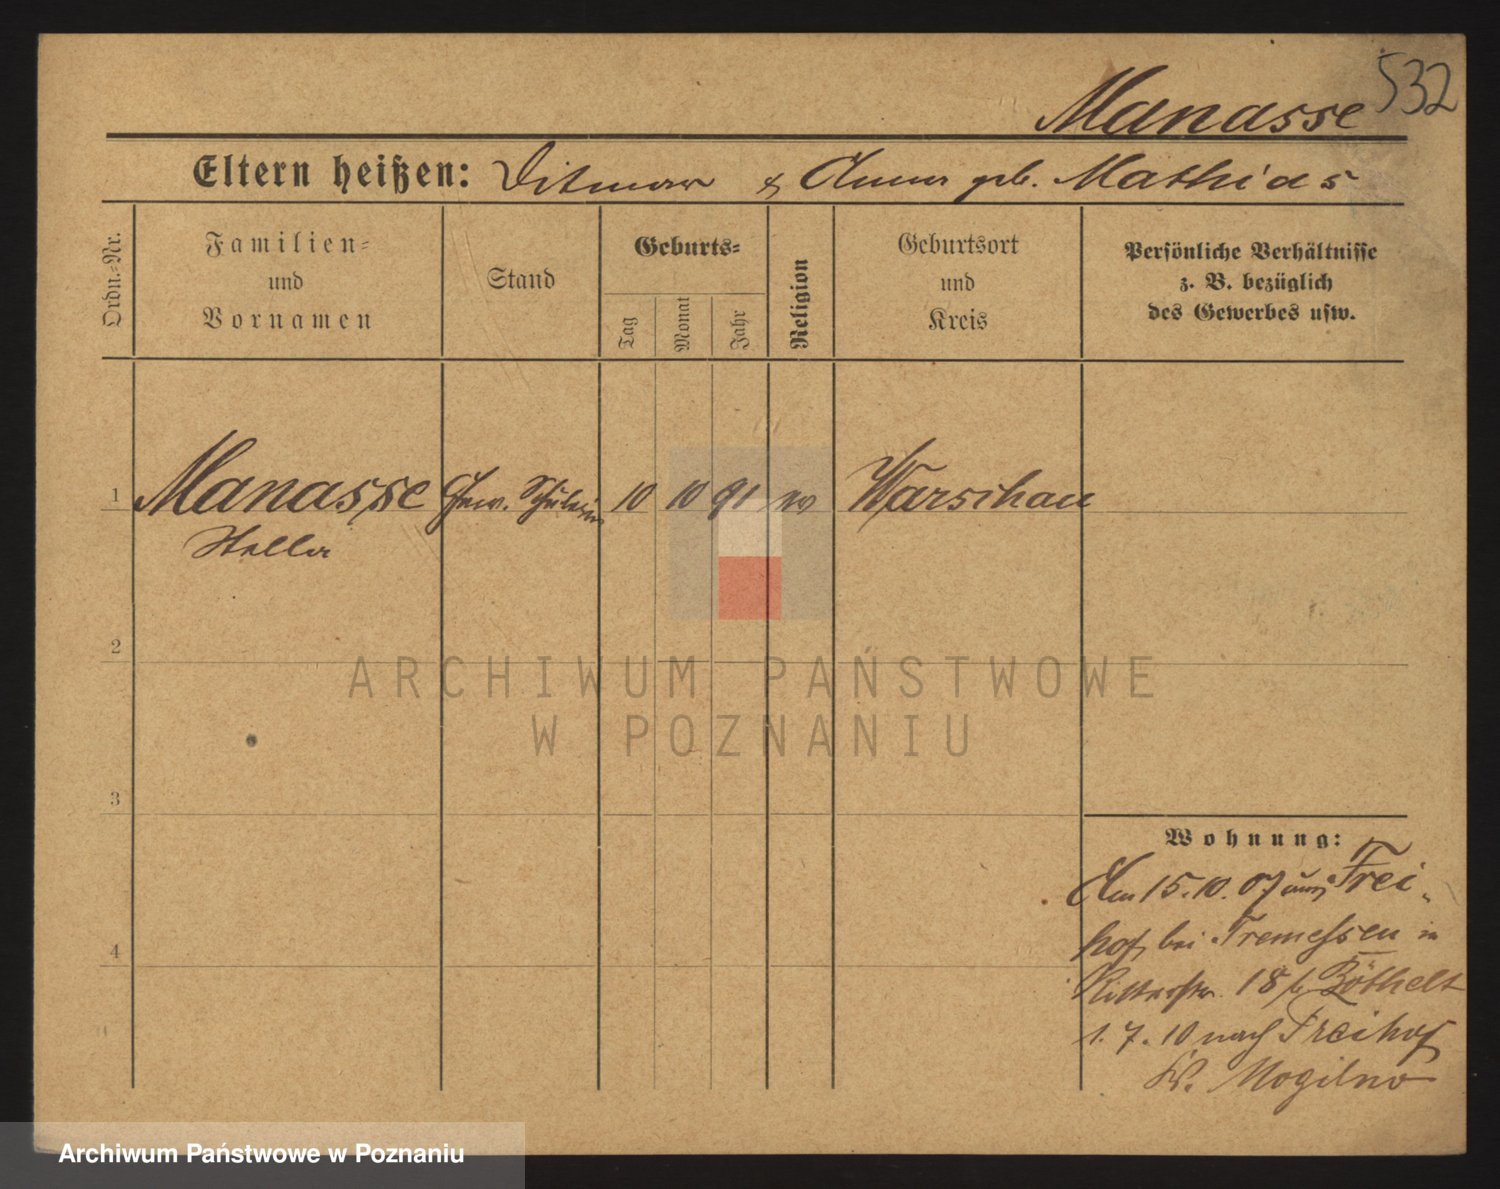 532
Manasse
Eltern heißen: Ditmar & Anna geb. Mathias
Ordn.=Nr.
Familien=
und
Vornamen
Stand
Geburts=
Tag
Monat
Jahr
Religion
Geburtsort
und
Kreis
Persönliche Verhältnisse
z. B. bezüglich
des Gewerbes usw.
1 Manasse Gew. Schülerin 10 10 91 Warschau
Stella
2
3
4
Wohnung:
Am 15.10.07 aus Frei-
hof bei Tremessen in
Ritterstr. 18 b/ Böthelt
1. 7. 10 nach Freihof
Kr. Mogilno
ARCHIWUM PAŃSTWOWE
W POZNANIU
Archiwum Państwowe w Poznaniu